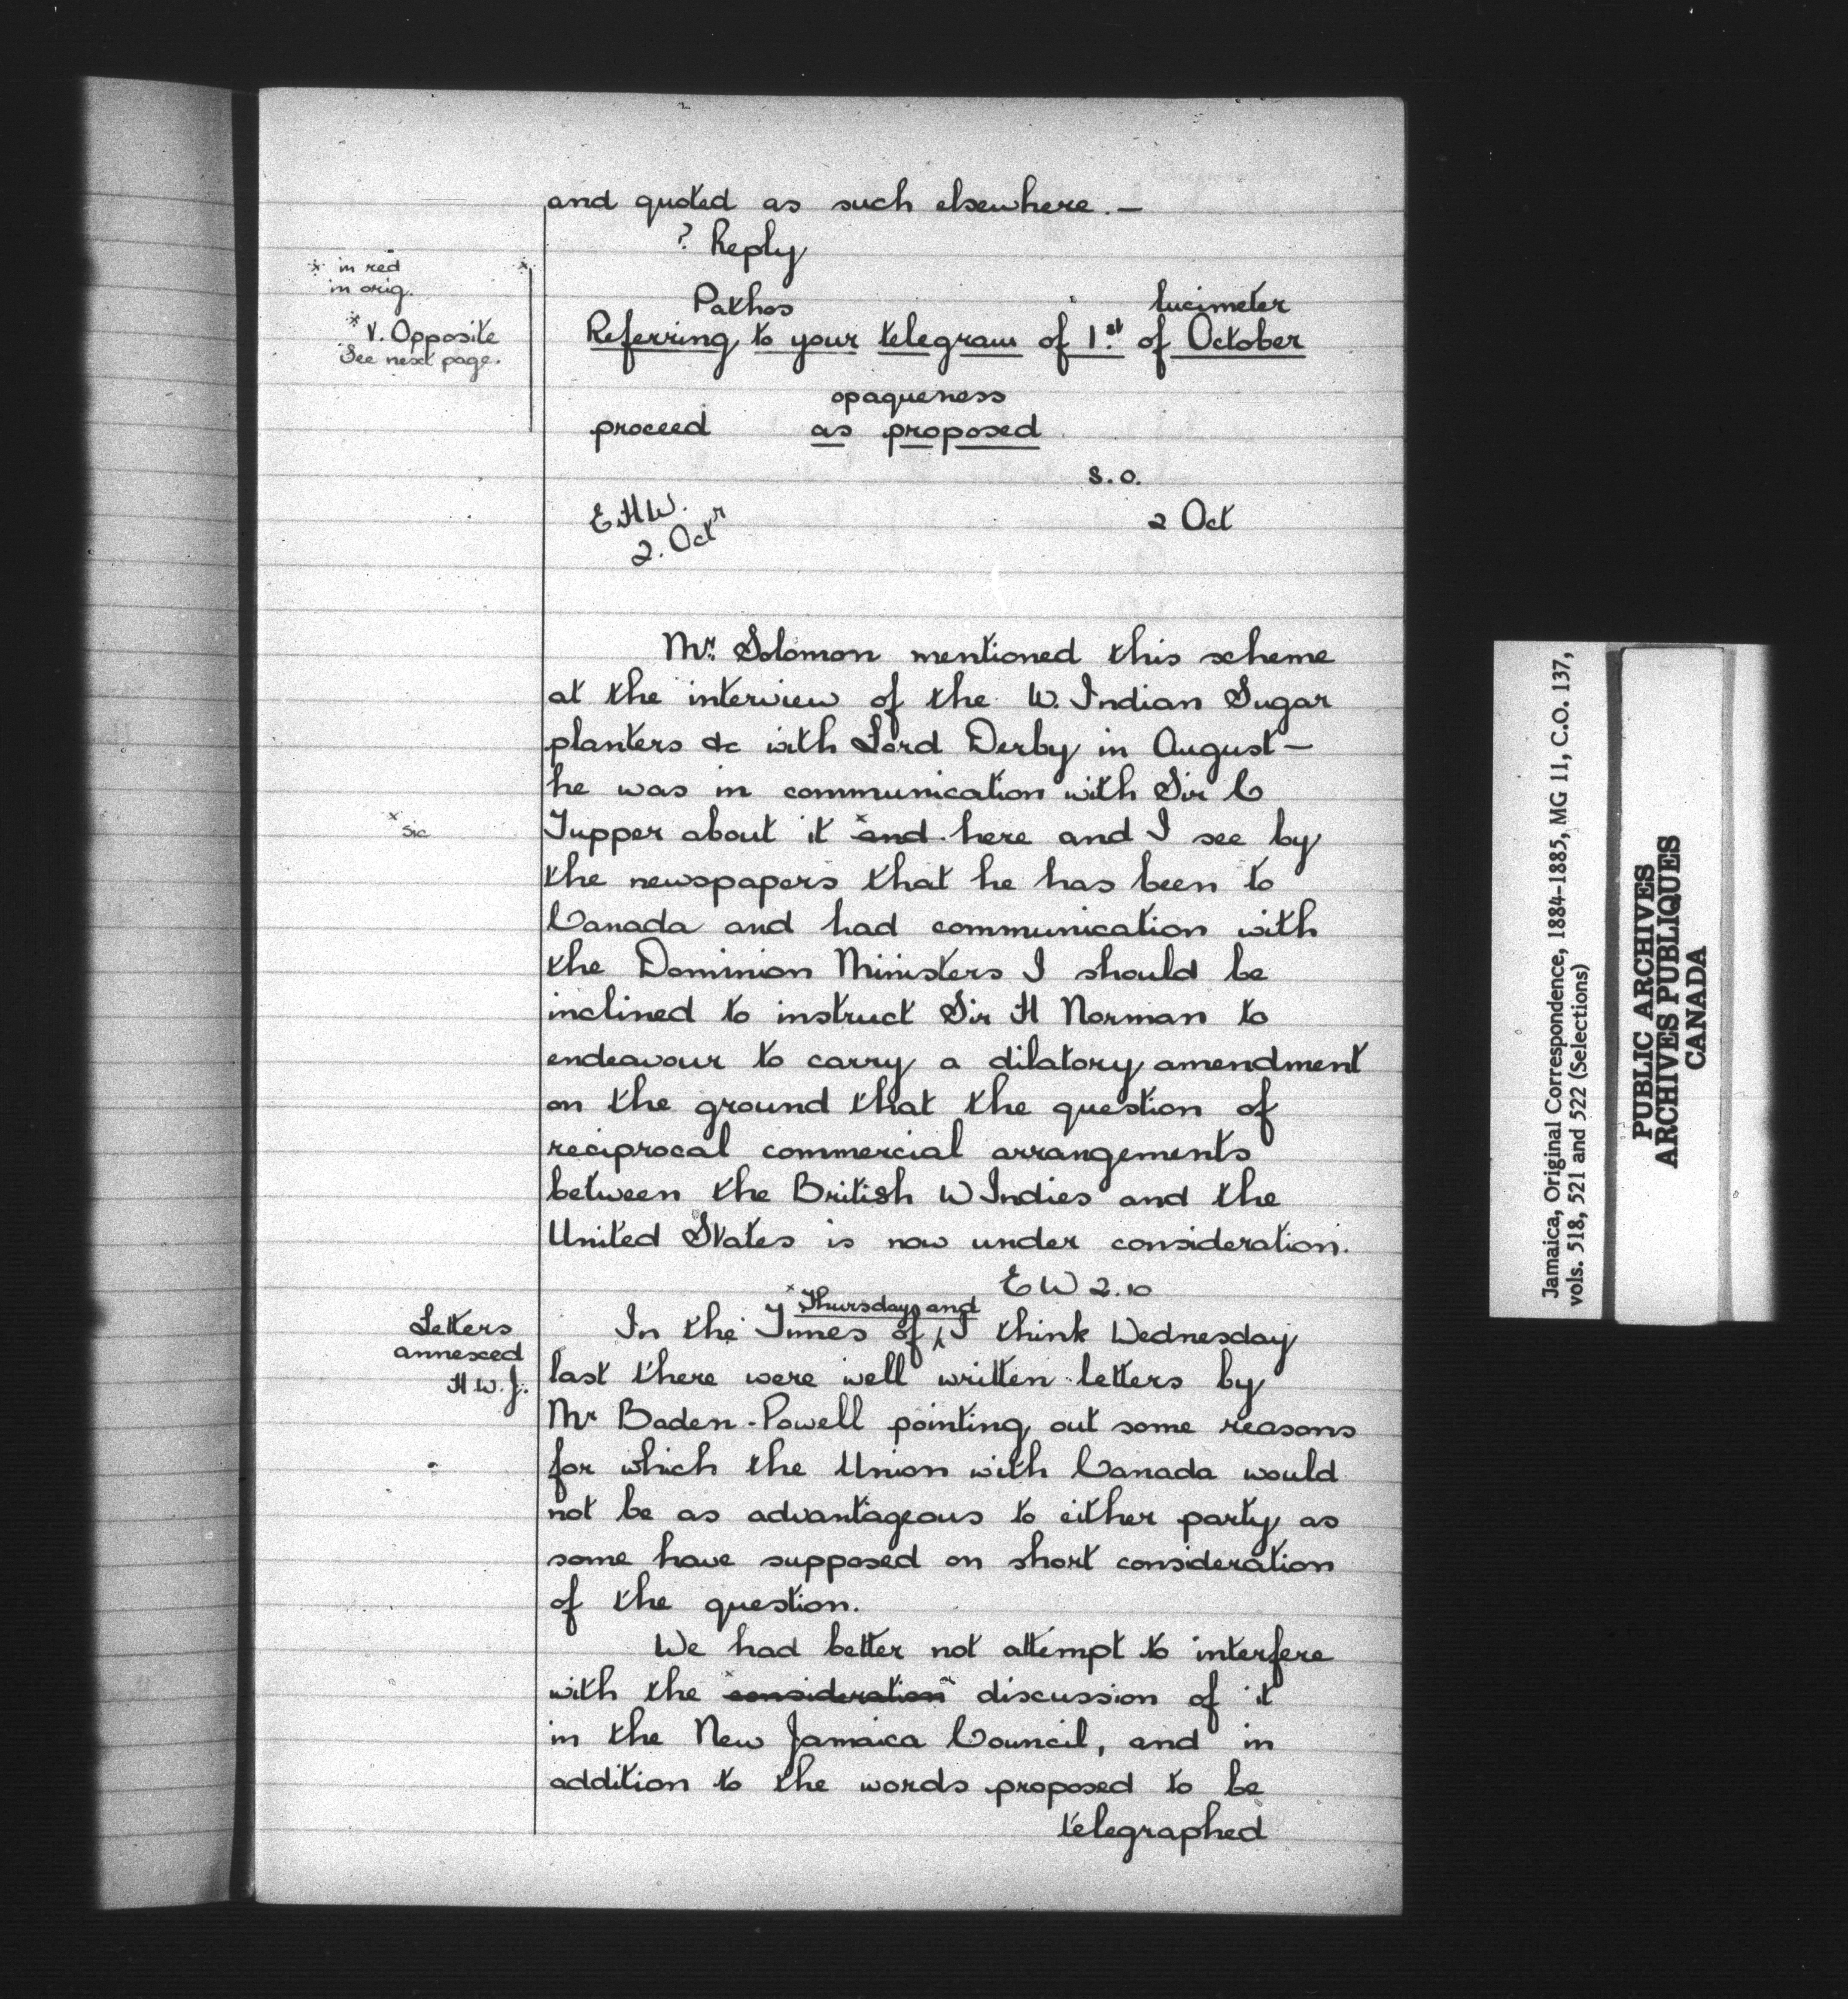 and quoted as such elsewhere. —
? Reply
* in red
in orig.
*
* V. Opposite
See next page.
Pathos lucimeter
Referring to your telegram of 1.st of October
opaqueness
proceed as proposed
S.O.
E.H.W. 2 Oct
2. Octr
Mr. Solomon mentioned this scheme
at the interview of the W. Indian Sugar
planters &c with Lord Derby in August —
he was in communication with Sir C
x sic
Tupper about it x and here and I see by
the newspapers that he has been to
Canada and had communication with
the Dominion Ministers I should be
inclined to instruct Sir H Norman to
endeavour to carry a dilatory amendment
on the ground that the question of
reciprocal commercial arrangements
between the British W Indies and the
United States is now under consideration.
E W 2.10
x Thursday and
Letters
annexed
H.W.J.
In the Times of ʌ I think Wednesday
last there were well written letters by
Mr Baden-Powell pointing out some reasons
for which the Union with Canada would
not be as advantageous to either party as
some have supposed on short consideration
of the question.
We had better not attempt to interfere
with the consideration discussion of it
in the New Jamaica Council, and in
addition to the words proposed to be
telegraphed
Jamaica, Original Correspondence, 1884-1885, MG 11, C.O. 137,
vols. 518, 521 and 522 (Selections)
PUBLIC ARCHIVES
ARCHIVES PUBLIQUES
CANADA